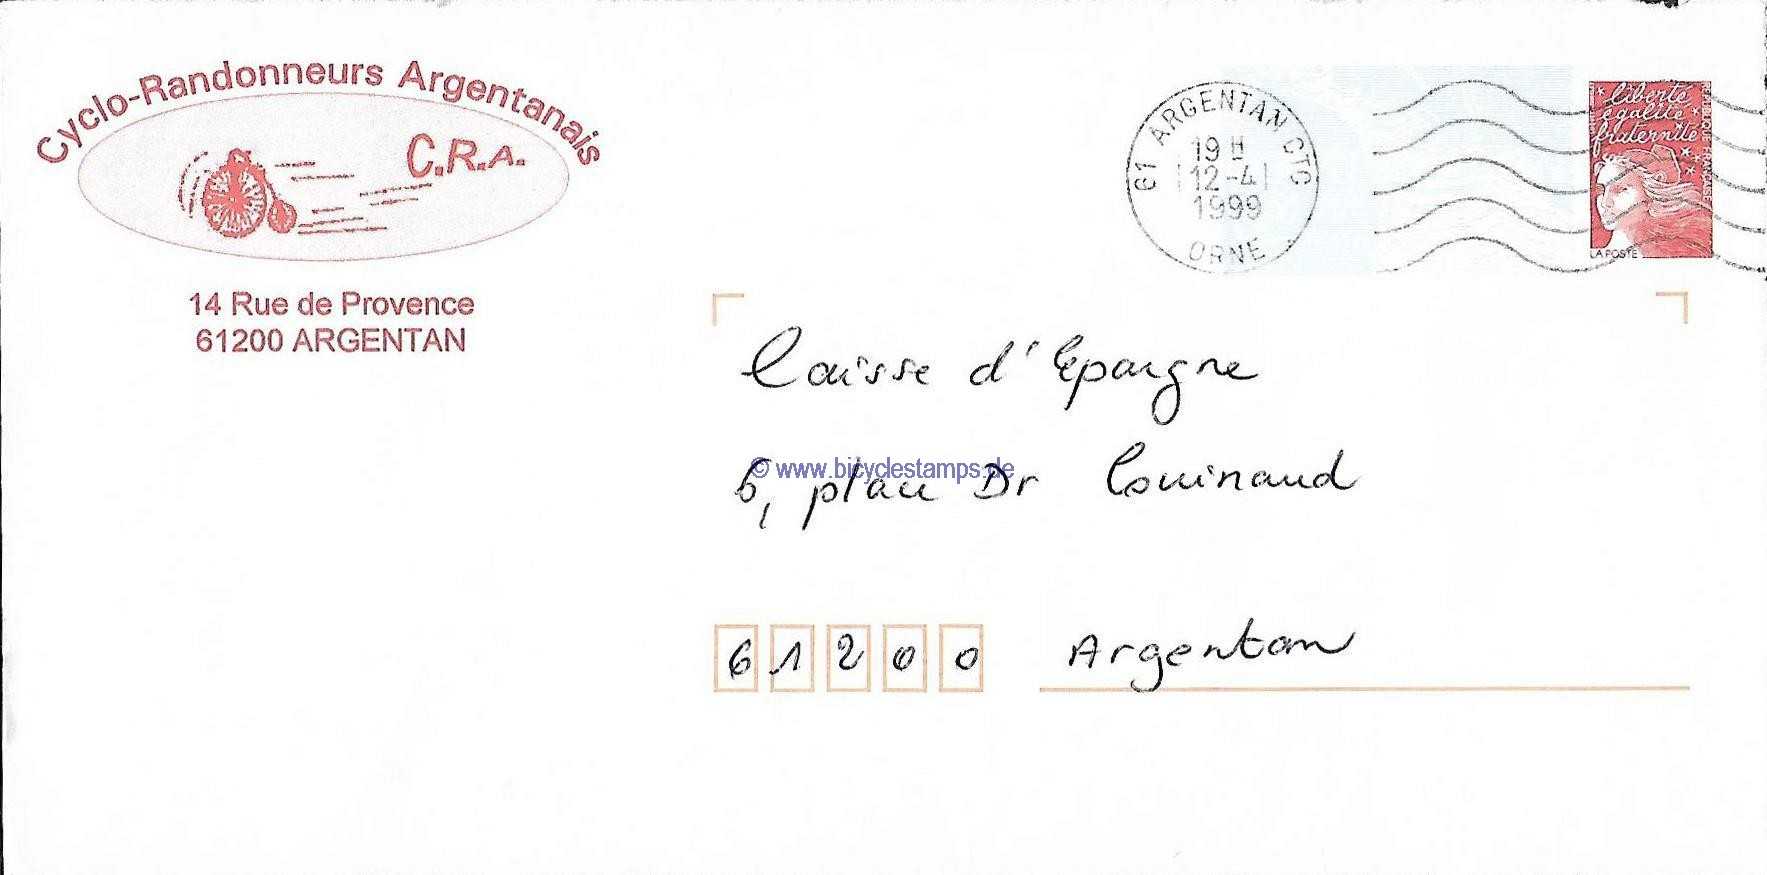 Cyclo-Randonneurs Argentanais
C.R.A.
14 Rue de Provence
61200 ARGENTAN
61 ARGENTAN CTC
19 H
12-4
1999
ORNE
liberté
égalité
fraternité
REPUBLIQUE FRANÇAISE
LA POSTE
Caisse d'Epargne
6, place Dr Couinaud
© www.bicyclestamps.de
61200 Argentan